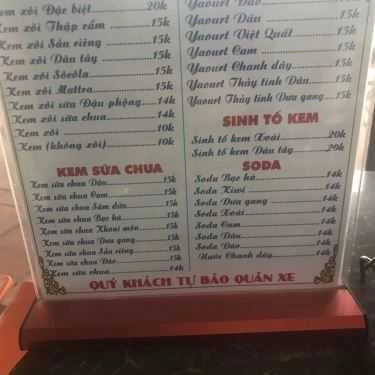 Kem xôi Đặc biệt 20k
Kem xôi Thập cẩm 15k
Kem xôi Sầu riêng 15k
Kem xôi Dâu tây 15k
Kem xôi Sôcôla 15k
Kem xôi Mattra 15k
Kem xôi sữa Đậu phộng 14k
Kem xôi sữa chua 14k
Kem xôi 10k
Kem (không xôi) 10k
KEM SỮA CHUA
Kem sữa chua Dâu 15k
Kem sữa chua Cam 15k
Kem sữa chua Sầm dứa 15k
Kem sữa chua Bạc hà 15k
Kem sữa chua Khoai môn 15k
Kem sữa chua Dưa gang 15k
Kem sữa chua Sầu riêng 15k
Kem sữa chua Đào 15k
Kem sữa chua 14k
Yaourt Đào
Yaourt Dâu 15k
Yaourt Việt Quất 15k
Yaourt Cam 15k
Yaourt Chanh dây 15k
Yaourt Thủy tinh Dâu 15k
Yaourt Thủy tinh Dưa gang 15k
SINH TỐ KEM
Sinh tố kem Xoài 20k
Sinh tố kem Dâu tây 20k
SODA
Soda Bạc hà 14k
Soda Kiwi 14k
Soda Dưa gang 14k
Soda Xoài 14k
Soda Cam 14k
Soda Dâu 14k
Soda Đào 14k
Nước Chanh dây 14k
QUÝ KHÁCH TỰ BẢO QUẢN XE